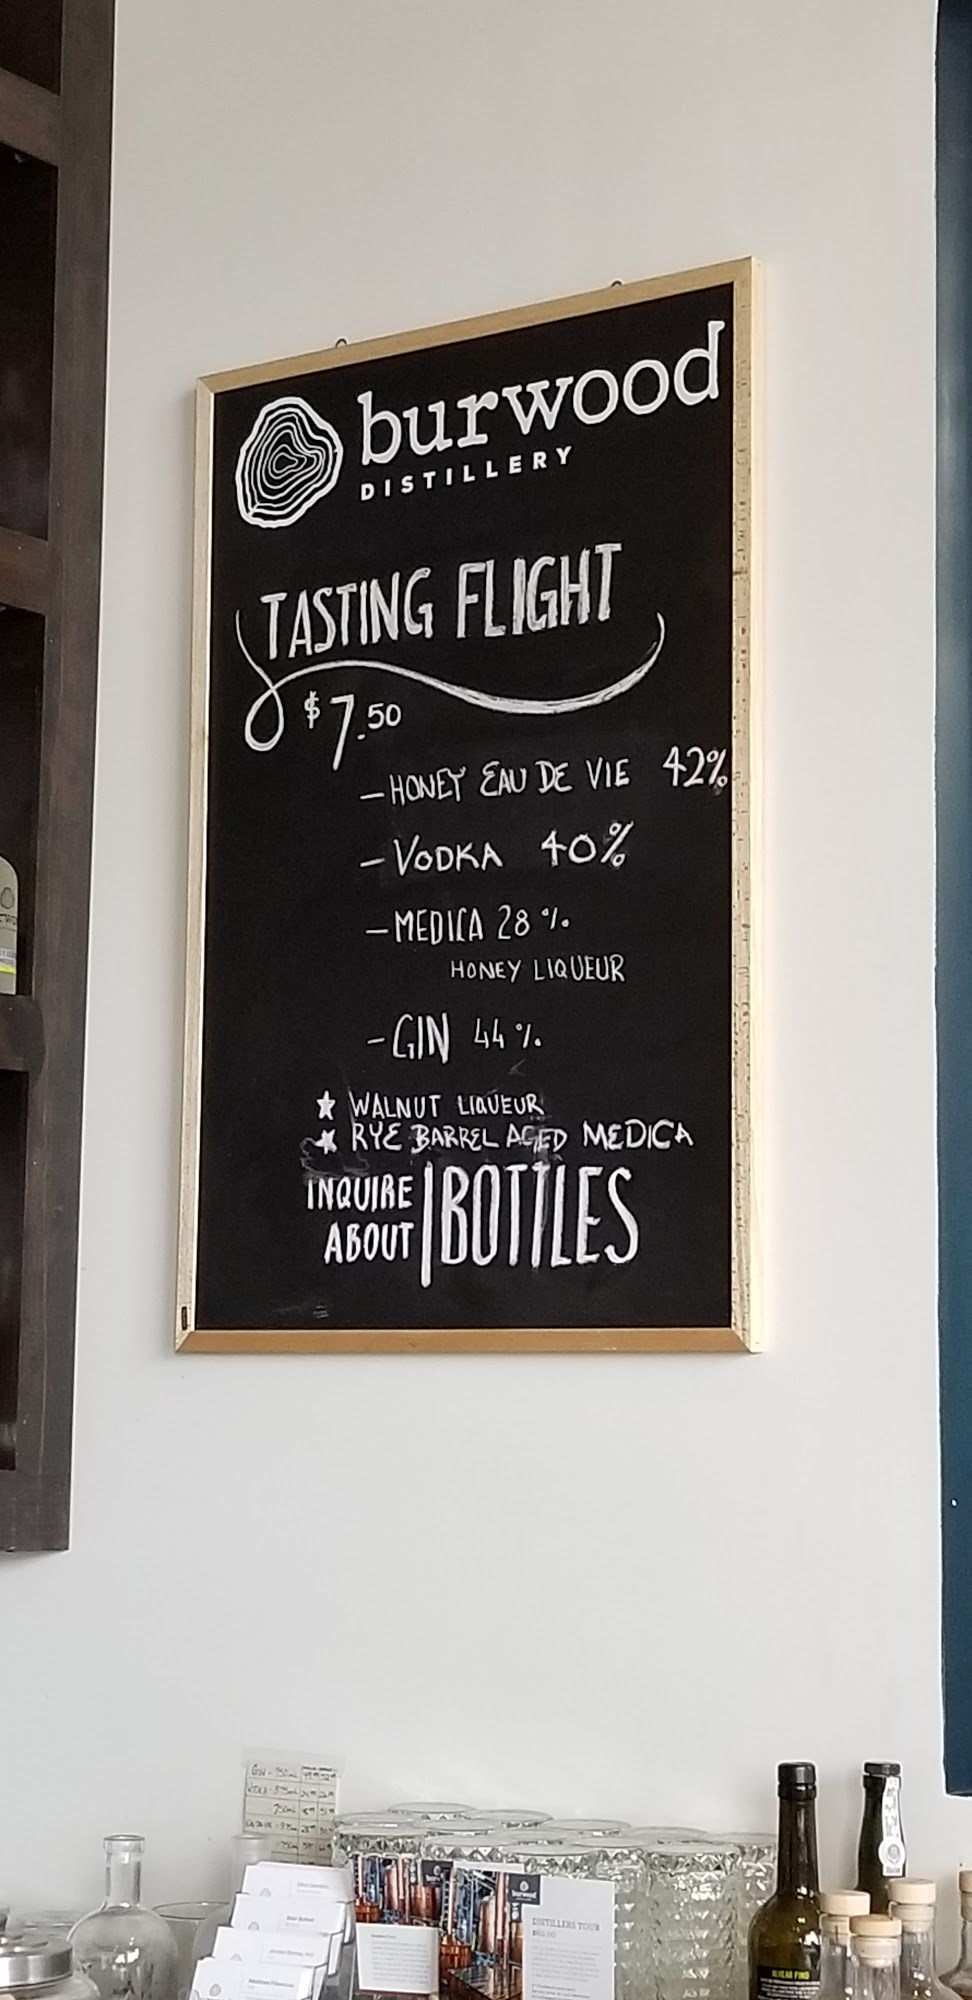 burwood
DISTILLERY
TASTING FLIGHT
$7.50
- HONEY EAU DE VIE 42%
- VODKA 40%
- MEDICA 28%
HONEY LIQUEUR
- GIN 44%
★ WALNUT LIQUEUR
★ RYE BARREL AGED MEDICA
INQUIRE ABOUT | BOTTLES
GIN - 750mL
VODKA - 375mL
750mL
burwood
DISTILLERY TOUR
ALVEAR FINO